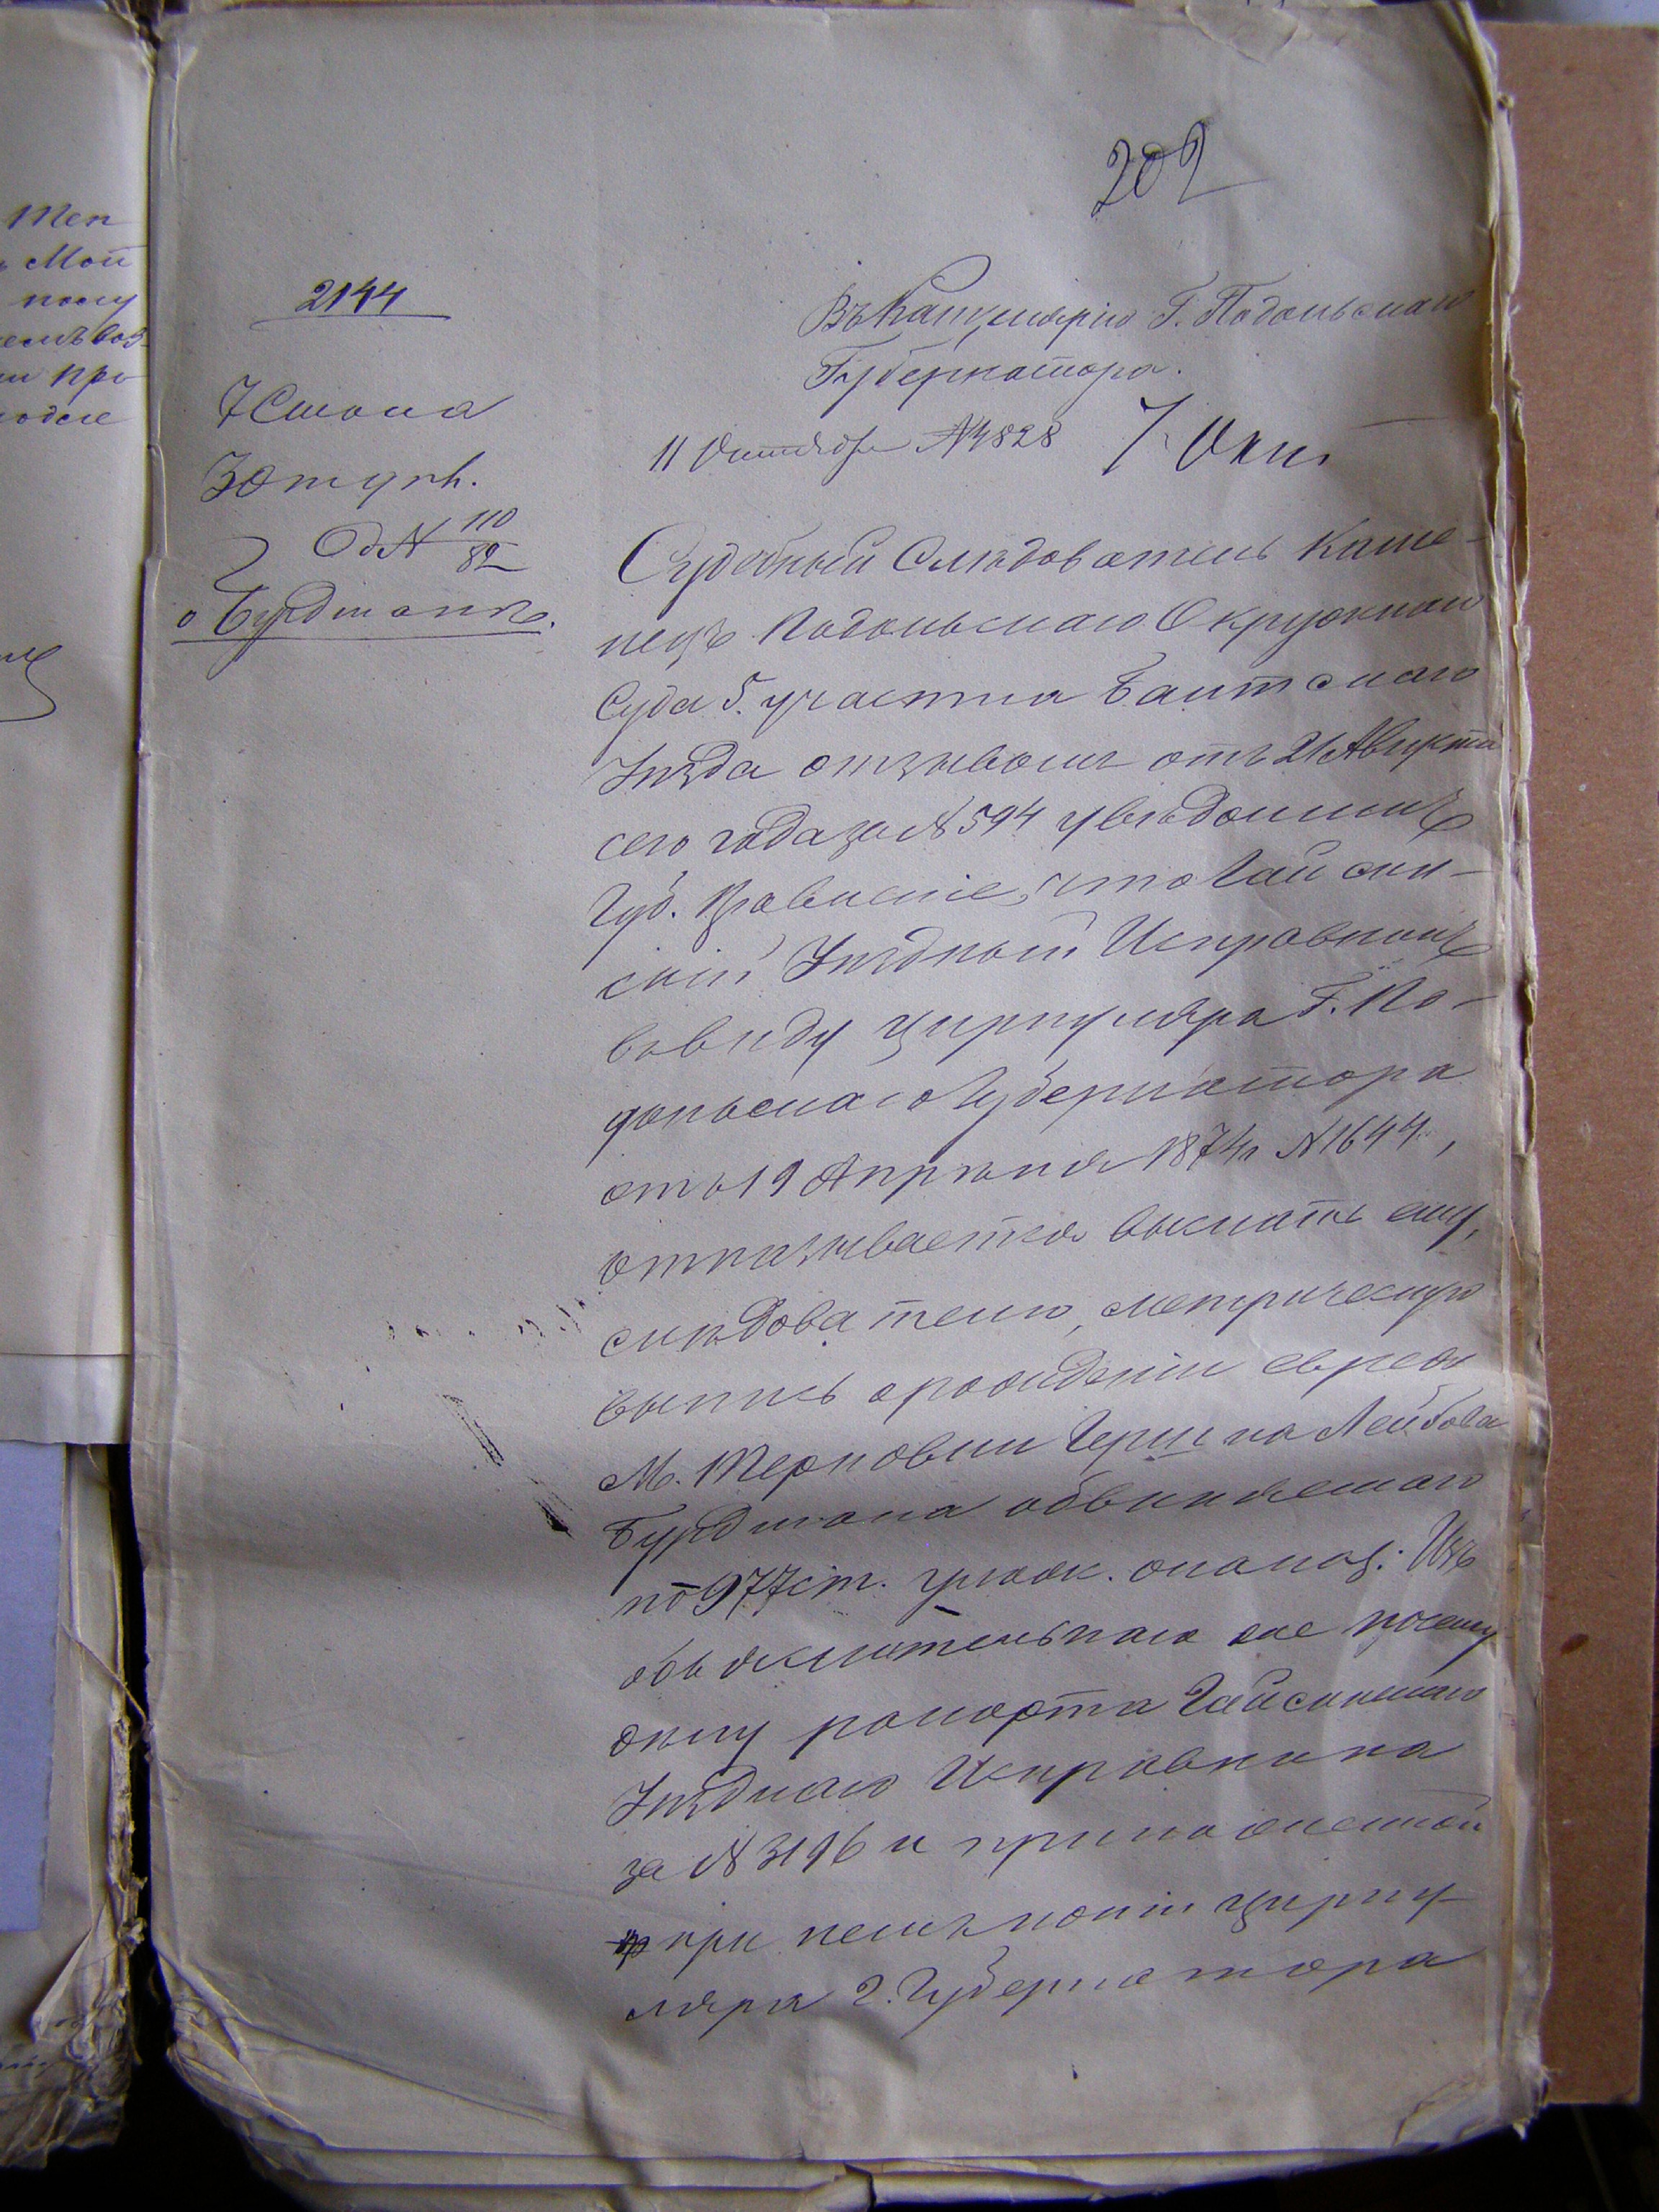 202
2144
Въ Канцелярію Г. Подольскаго
Губернатора.
7 Стола
3 Отдѣл.
Д № 110/82
о Бурдманѣ.
11 Октября № 4828 7 Окт
Судебный Слѣдователь Каме-
нецъ Подольскаго Окружнаго
Суда 5. участка Балтскаго
Уѣзда отзывомъ отъ 21 Августа
сего года за № 594 увѣдомилъ
Губ. Правленіе, что Гайсин-
скій Уѣздный Исправникъ
ввиду циркуляра Г. По-
дольскаго Губернатора
отъ 19 Апрѣля 1874 г № 1644,
отказывается выслать ему,
слѣдователю, метрическую
выпись о рожденіи еврея
М. Терновки Гершка Лейбова
Бурдмана обвиняемаго
по 977 ст. улож. о наказ. Изъ
объяснительнаго же по сему
дѣлу рапорта Гайсинскаго
Уѣзднаго Исправника
за № 3196 и приложенной
при немъ копіи цирку-
ляра Г. Губернатора
Теп
Мой
про